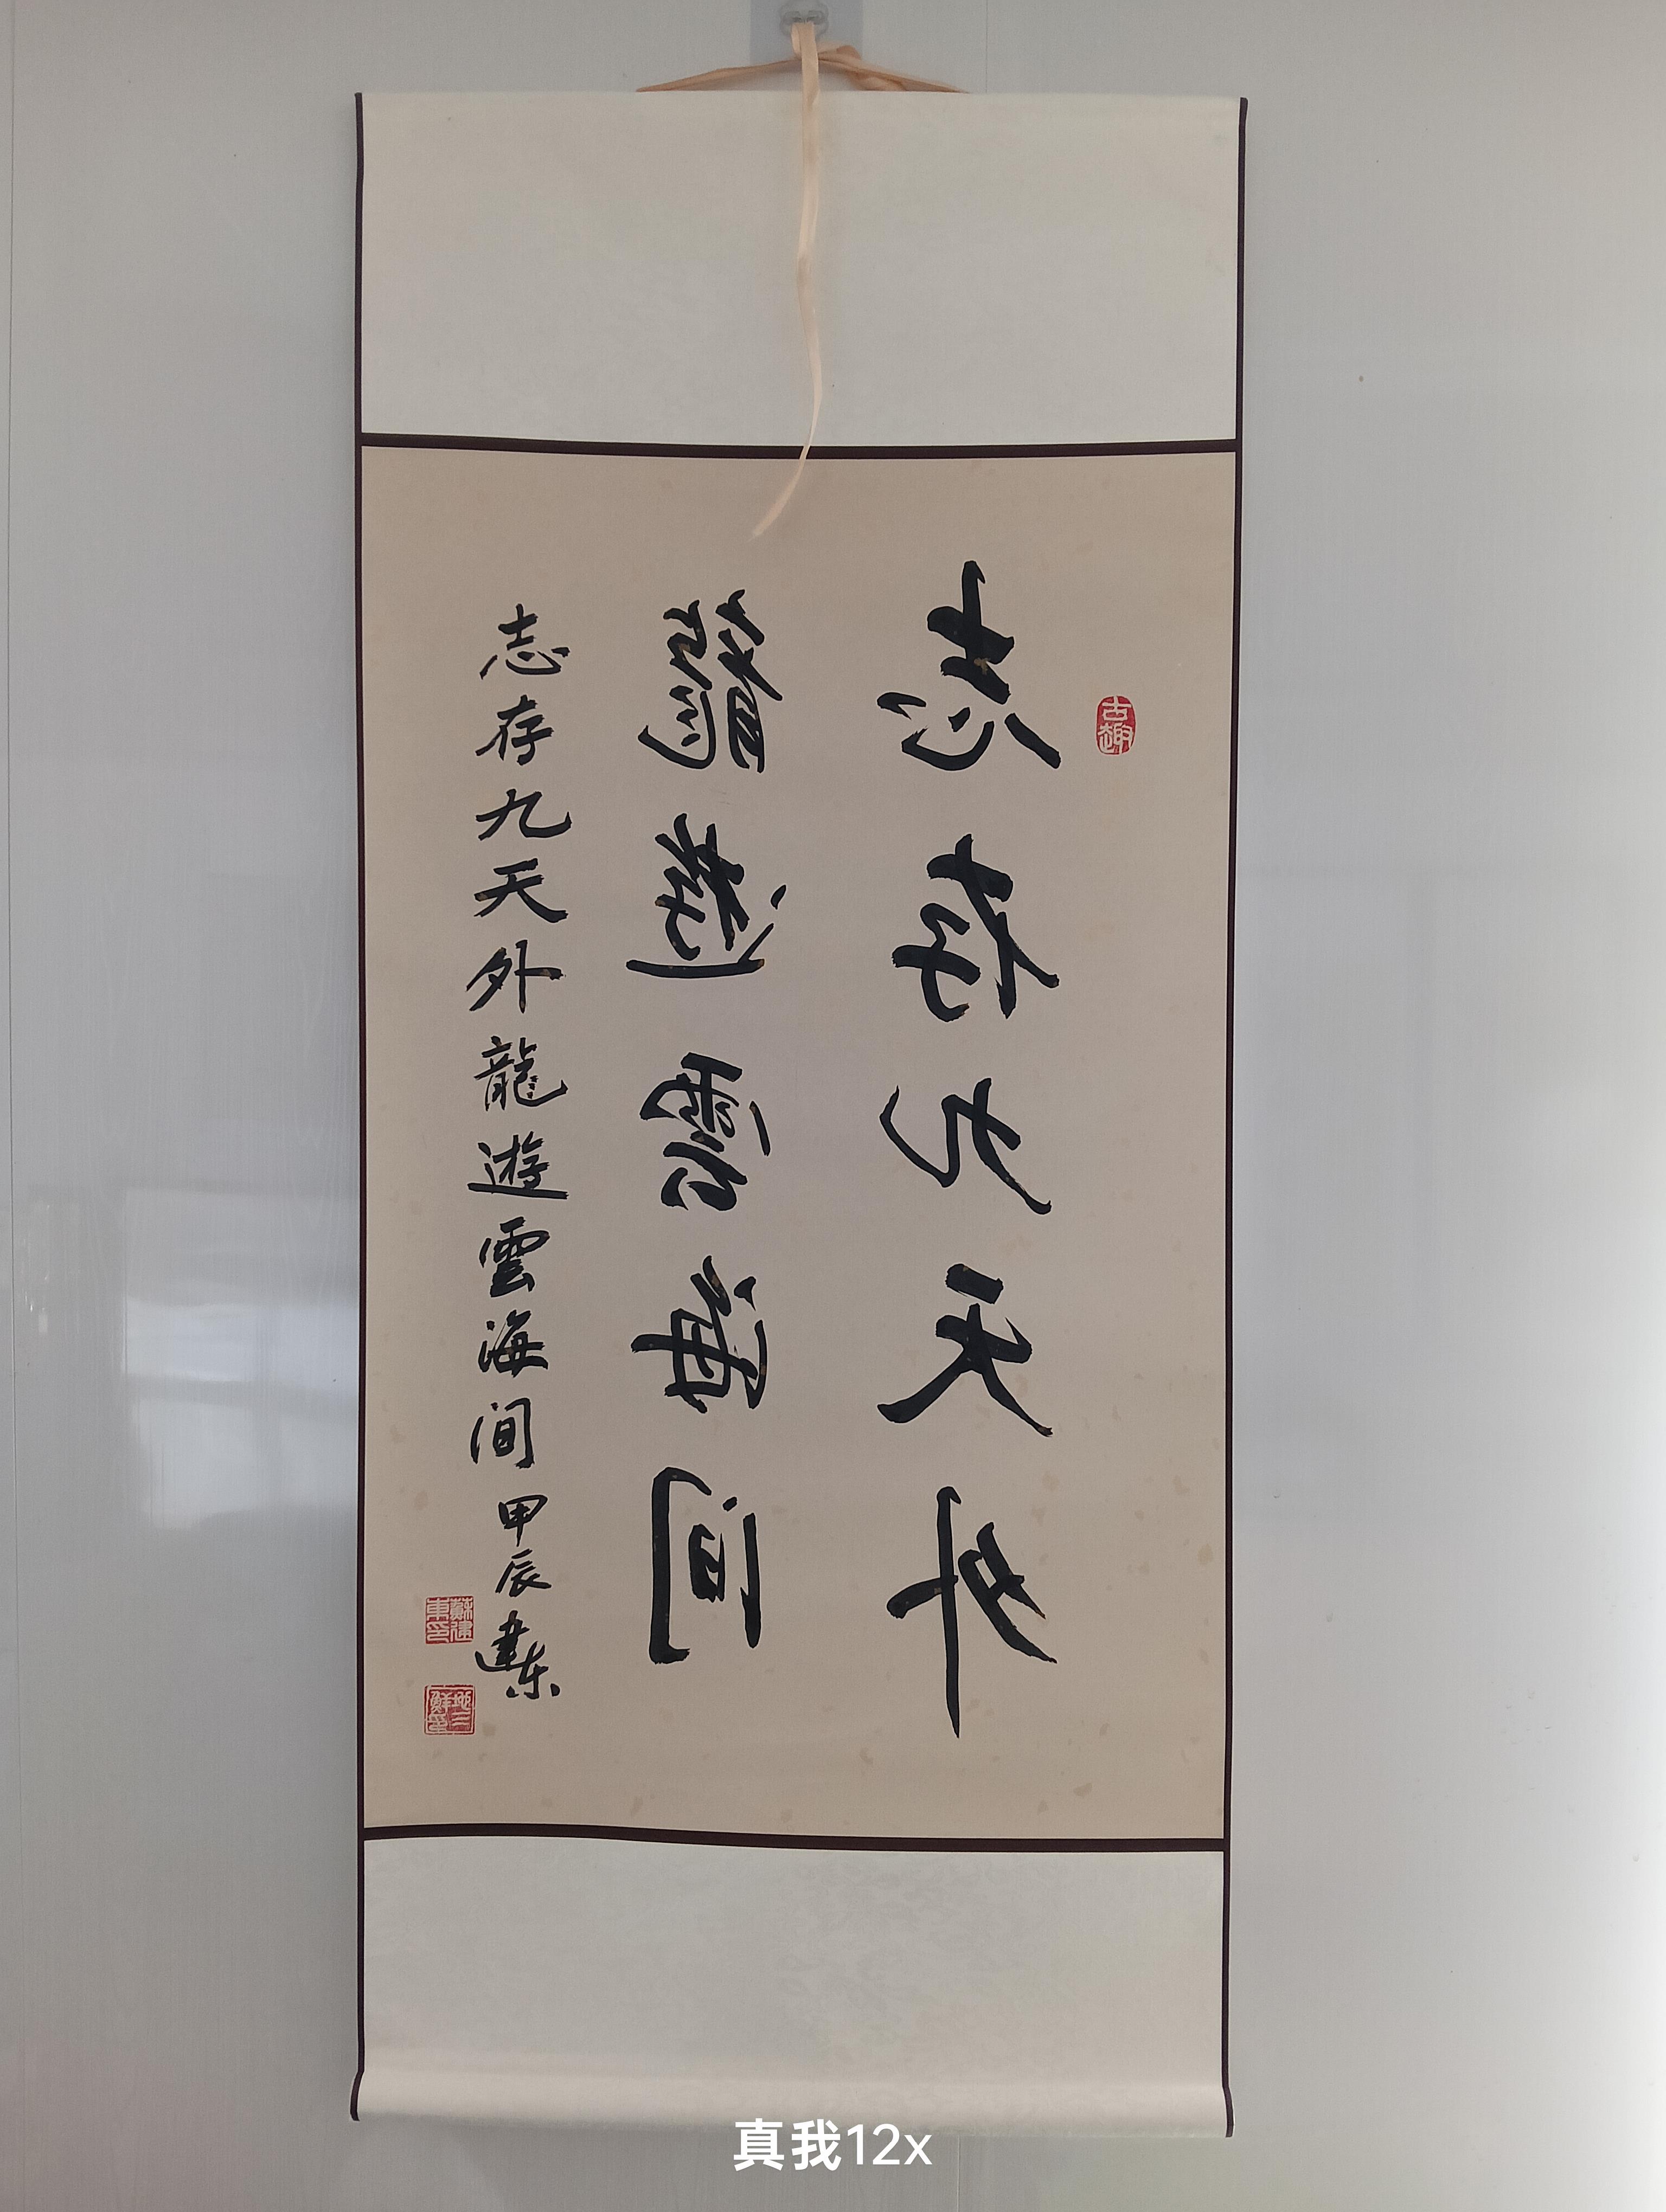 古趣
志存九天外
龍遊雲海间
志存九天外龍遊雲海间甲辰建东
蘇建東印
真我12x